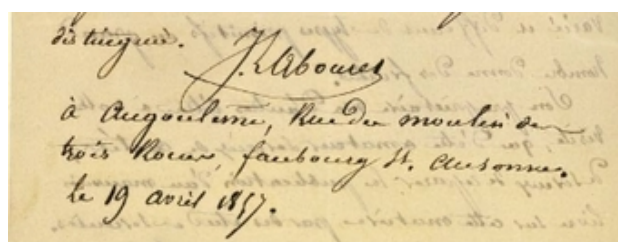 distingué.
à Angoulême, Rue du moulin des
trois Roues, faubourg St. Ausonne.
le 19 avril 1857.